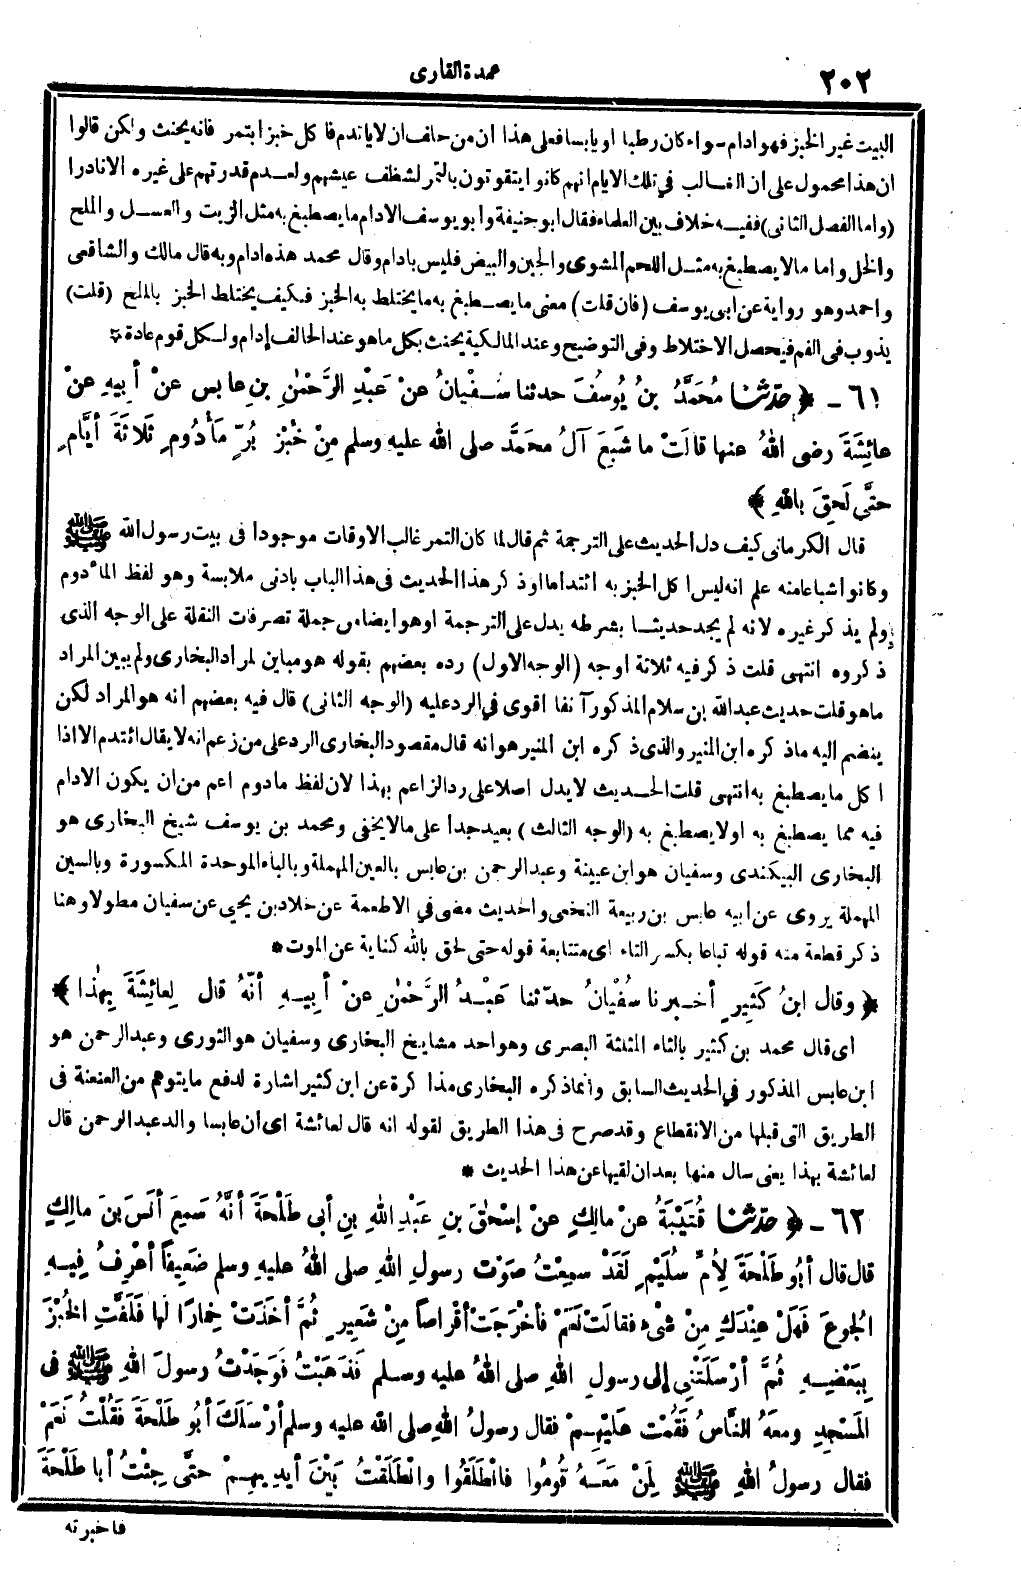 ٢٠٢
عمدة القارى
البيت غير الخبز فهو ادام سواء كان رطبا او يابسا فعلى هذا ان من حلف ان لا ياتدم فا كل خبزا بتمر فانه يحنث ولكن قالوا
ان هذا محمول على ان الغالب فى تلك الايام انهم كانوا يتقوتون بالتمر لشظف عيشهم ولعدم قدرتهم على غيره الا نادرا
(واما الفصل الثانى) ففيه خلاف بين العلماء فقال ابو حنيفة وابو يوسف الادام ما يصطبغ به مثل الزيت والعسل والملح
والخل واما مالا يصطبغ به مثل اللحم المشوى والجبن والبيض فليس بادام وقال محمد هذه ادام وبه قال مالك والشافعى
واحمد وهو رواية عن ابى يوسف (فان قلت) معنى ما يصطبغ به ما يختلط به الخبز فكيف يختلط الخبز بالملح (قلت)
يذوب فى الفم فيحصل الاختلاط وفى التوضيح وعند المالكية يحنث بكل ماهو عند الحالف إدام ولكل قوم عادة *
٦١ ـ ﴿ حَدَّثَنَا مُحَمَّدُ بنُ يُوسُفَ حدثنا سُفْيانُ عنْ عَبْدِ الرَّحْمٰنِ بنِ عابِس عنْ أبِيهِ عنْ
عائِشَةَ رضى اللهُ عنها قالَتْ ما شَبِعَ آلُ محَمَّد صلى الله عليه وسلم مِنْ خُبْزِ بُرٍّ مَأْدُومٍ ثَلاثَةَ أيَّامٍ
حتَّى لَحِقَ باللهِ ﴾
قال الكرمانى كيف دل الحديث على الترجمة ثم قال لما كان التمر غالب الاوقات موجودا فى بيت رسول الله ﷺ
وكانوا شباعا منه علم انه ليس ا كل الخبز به ائتداما او ذ كر هذا الحديث فى هذا الباب بادنى ملابسة وهو لفظ المأدوم
ولم يذ كر غيره لانه لم يجد حديثا بشرطه يدل على الترجمة او هو ايضا من جملة تصرفات النقلة على الوجه الذى
ذ كروه انتهى قلت ذ كر فيه ثلاثة اوجه (الوجه الاول) رده بعضهم بقوله هو مباين لمراد البخارى ولم يبين المراد
ماهو قلت حديث عبد الله بن سلام المذكور آنفا اقوى فى الرد عليه (الوجه الثانى) قال فيه بعضهم انه هو المراد لكن
ينضم اليه ماذ كره ابن المنير والذى ذ كره ابن المنير هو انه قال مقصود البخارى الرد على من زعم انه لا يقال ائتدم الا اذا
ا كل ما يصطبغ به انتهى قلت الحديث لا يدل اصلا على رد الزاعم بهذا لان لفظ مادوم اعم من ان يكون الادام
فيه مما يصطبغ به اولا يصطبغ به (الوجه الثالث) بعيد جدا على مالا يخفى ومحمد بن يوسف شيخ البخارى هو
البخارى البيكندى وسفيان هو ابن عيينة وعبد الرحمن بن عابس بالعين المهملة وبالباء الموحدة المكسورة وبالسين
المهملة يروى عن ابيه عابس بن ربيعة النخعى والحديث مضى في الاطعمة عن خلاد بن يحيى عن سفيان مطولا وهنا
ذ كر قطعة منه قوله تباعا بكسر التاء اى متتابعة قوله حتى لحق بالله كناية عن الموت *
﴿ وقال ابنُ كَثِيرٍ أخبرنا سُفْيانُ حدّثنا عَبْدُ الرَّحْمٰنِ عنْ أبِيهِ أنَّهُ قال لِعائِشَةَ بِهٰذا ﴾
اى قال محمد بن كثير بالثاء المثلثة البصرى وهو احد مشايخ البخارى وسفيان هو الثورى وعبد الرحمن هو
ابن عابس المذكور في الحديث السابق وانما ذكره البخارى مذا كرة عن ابن كثير اشارة لدفع ما يتوهم من العنعنة فى
الطريق التى قبلها من الانقطاع وقد صرح فى هذا الطريق لقوله انه قال لعائشة اى ان عابسا والد عبد الرحمن قال
لعائشة بهذا يعنى سال منها بعد ان لقيها عن هذا الحديث *
٦٢ ـ ﴿ حَدَّثَنَا قُتَيْبَةُ عنْ مالِكٍ عنْ إسْحٰقَ بنِ عَبْدِ اللهِ بنِ أبى طَلْحَةَ أنَّهُ سَمِعَ أنَسَ بنَ مالِكٍ
قال قال أبُو طَلْحَةَ لِأُمِّ سُلَيْمٍ لَقَدْ سمِعْتُ صَوْتَ رسولِ اللهِ صلى اللهُ عليهِ وسلم ضَعِيفاً أعْرِفُ فِيهِ
الجُوعَ فَهَلْ عِنْدَكِ مِنْ شىْءٍ فقالَتْ نَعَمْ فأخْرَجَتْ أقْراصاً مِنْ شَعِيرٍ ثُمَّ أخَذَتْ خِمارًا لَها فَلَفَّتِ الخُبْزَ
بِبَعْضِهِ ثُمَّ أرْسَلَتْنِى إلى رسولِ اللهِ صلى اللهُ عليه وسلم فَذَهَبْتُ فَوَجَدْتُ رسولَ اللهِ ﷺ فى
المَسْجِدِ ومعَهُ النَّاسُ فَقُمْت عَلَيْهِمْ فقال رسولُ اللهِ صلى الله عليه وسلم أرْسَلَكَ أبُو طَلْحَةَ فَقُلْتُ نَعَمْ
فقال رسولُ اللهِ ﷺ لِمَنْ مَعَهُ قُومُوا فانْطَلَقُوا وانْطَلَقْتُ بَيْنَ أيدِيهِمْ حتَّى جِئْتُ أبا طَلْحَةَ
فاخبرته